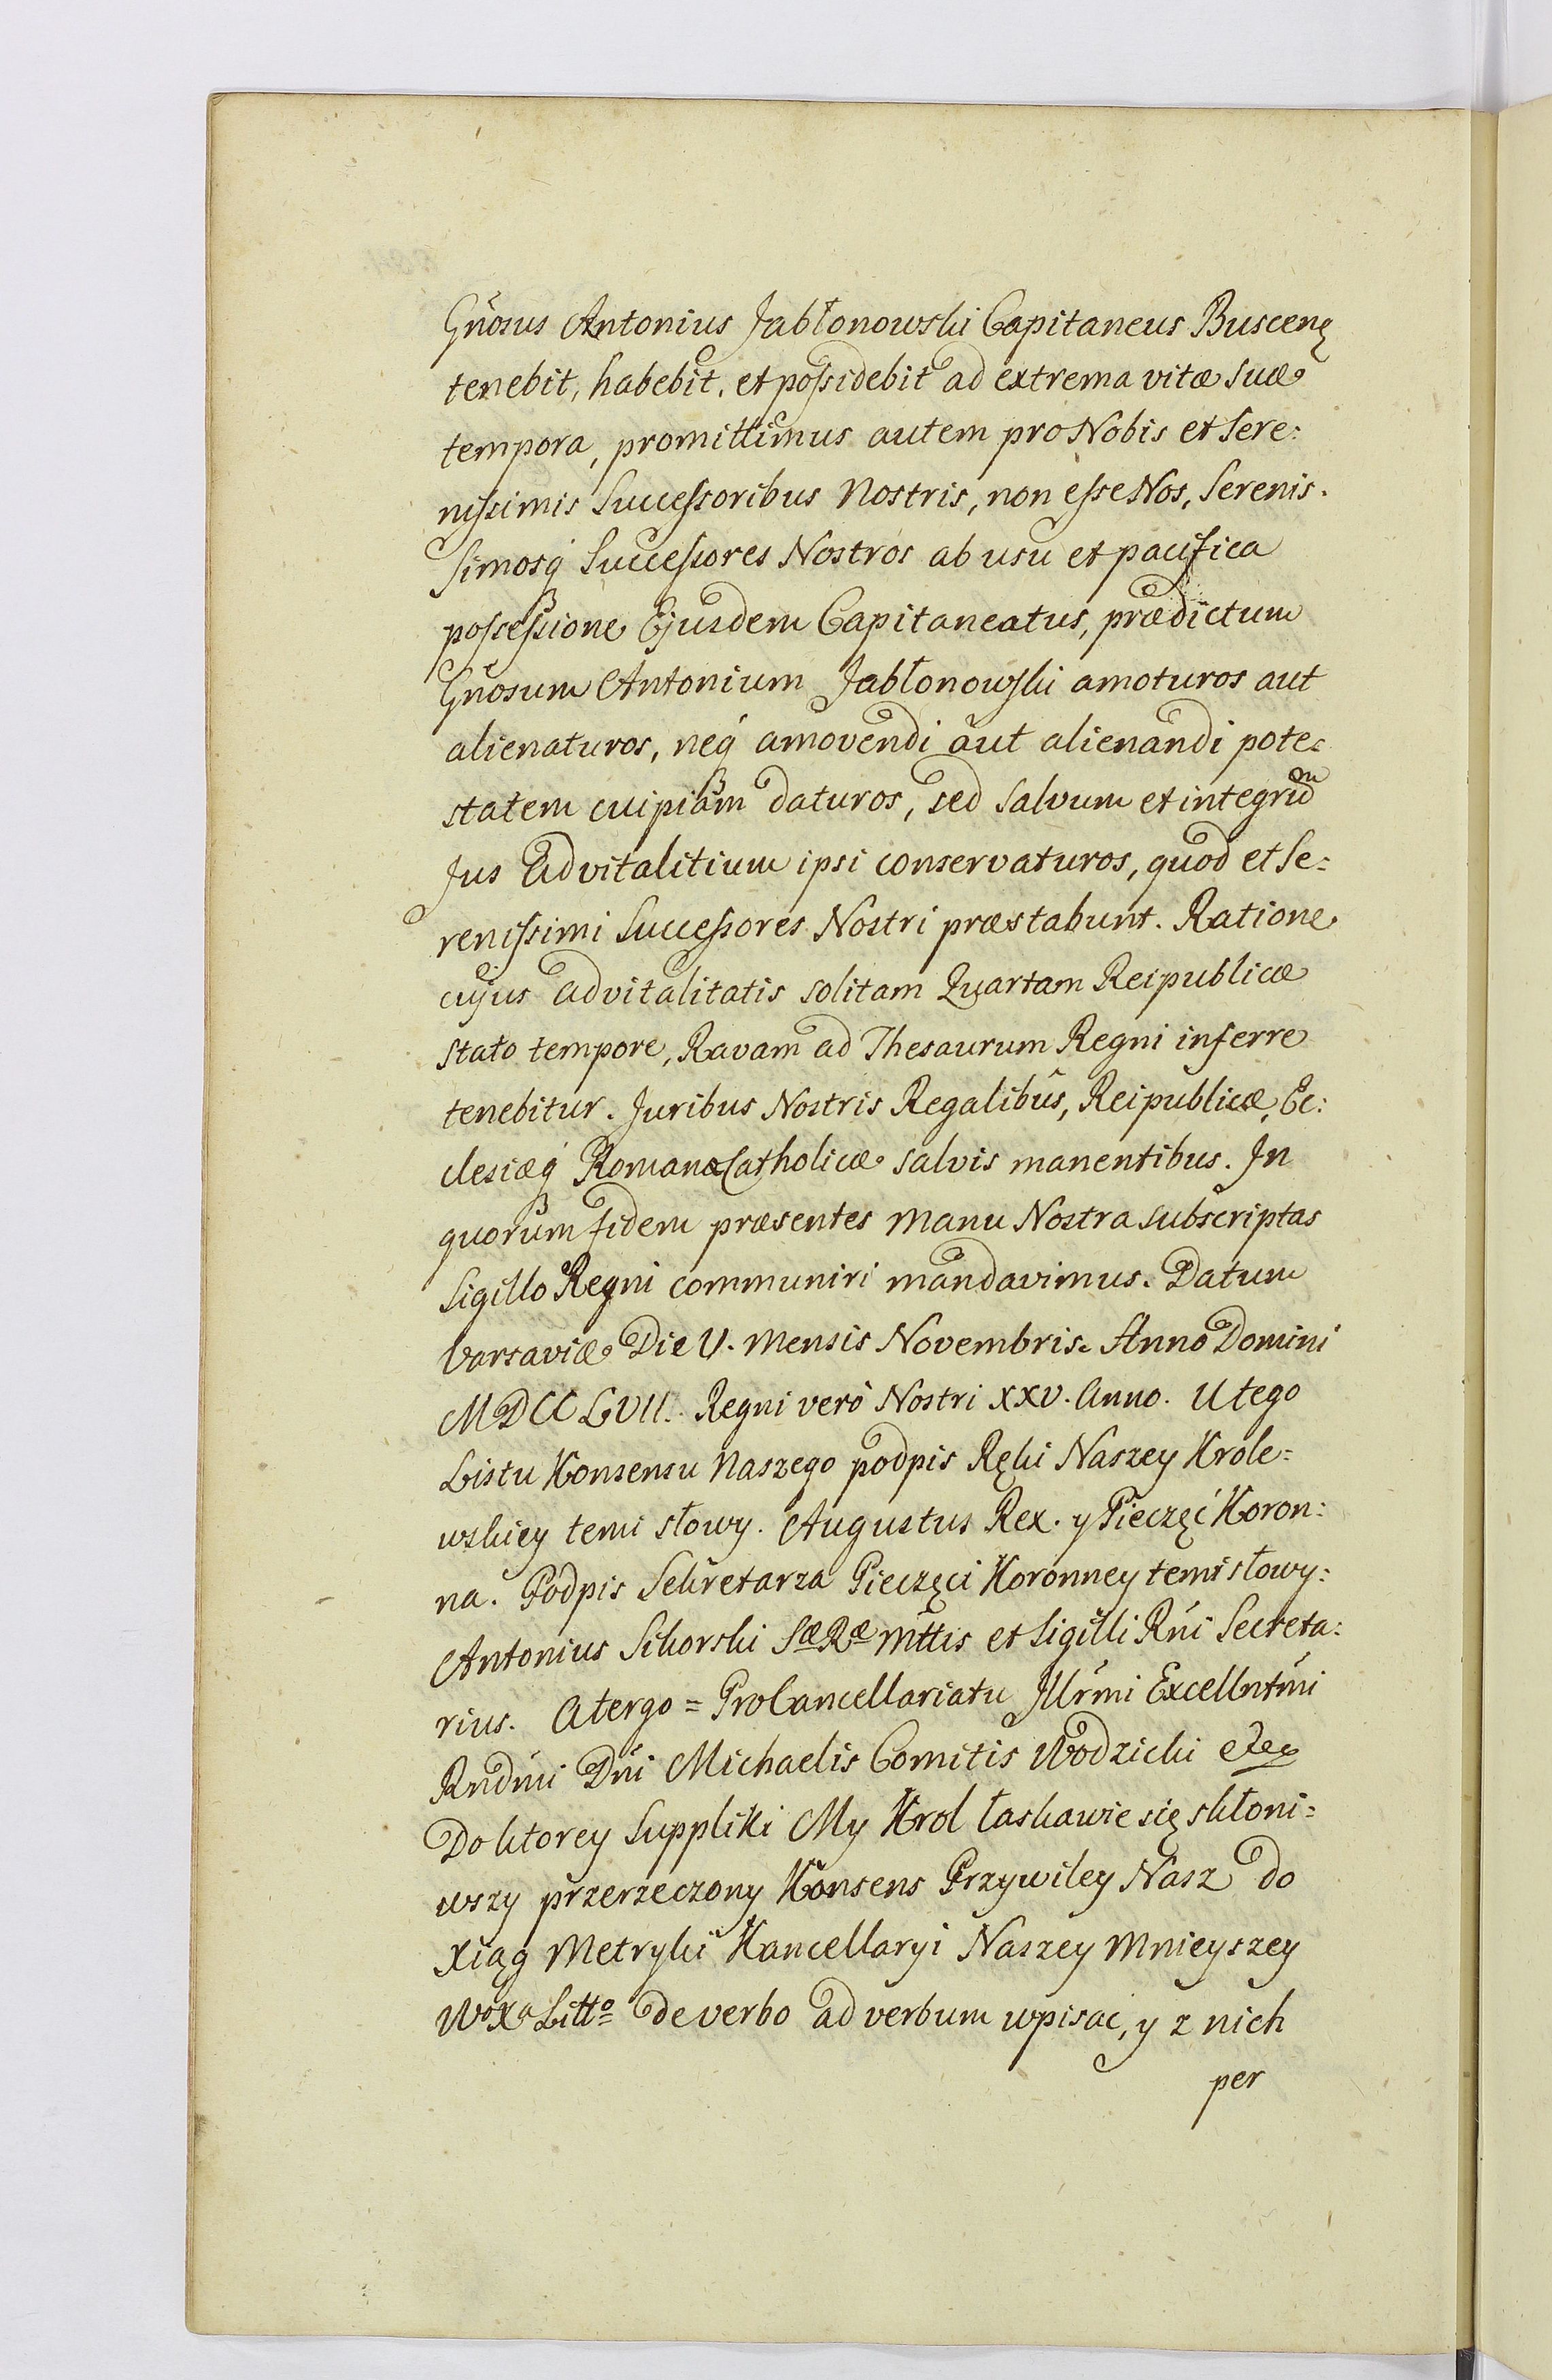 Gnosus Antonius Jabłonowski Capitaneus Buscen̄
tenebit, habebit, et possidebit ad extrema vitæ suæ
tempora, promittimus autem pro Nobis et Sere:
nissimis Successoribus Nostris, non esse Nos, Serenis.
simosq́ Successores Nostros ab usu et pacifica
possessione Ejusdem Capitaneatus, prædictum
Gnosum Antonium Jabłonowski amoturos aut
alienaturos, neq́ amovendi aut alienandi pote:
statem cuipiam daturos, sed salvum et integrum
Jus Advitalitium ipsi conservaturos, quod et Se:
renissimi Successores Nostri præstabunt. Ratione
cujus advitalitatis solitam Quartam Reipublicæ
stato tempore, Ravam ad Thesaurum Regni inferre
tenebitur. Juribus Nostris Regalibus, Reipublicæ, Ec:
clesiæq́ Romanæ Catholicæ salvis manentibus. In
quorum fidem præsentes Manu Nostra subscriptas
Sigillo Regni communiri mandavimus. Datum
Varsaviæ Die V. Mensis Novembris. Anno Domini
MDCCLVII. Regni verò Nostri XXV. Anno. U tego
Listu Konsensu Naszego podpis Ręki Naszey Krole:
wskiey temi słowy. Augustus Rex. y Pieczęć Koron:
na. Podpis Sekretarza Pieczęci Koronney temi słowy:
Antonius Sikorski Sæ Ræ Mttis et Sigilli Rńi Secreta:
rius. A tergo = ProCancellariatu Illrmi Excellntmi
Rndmi Dni Michaelis Comitis Wodzicki etc
Do ktorey Suppliki My Krol łaskawie się skłoni:
wszy przerzeczony Konsens Przywiley Nasz do
Xiąg Metryki Kancellaryi Naszey Mnieyszey
WoXo Litto de verbo ad verbum wpisać, y z nich
per